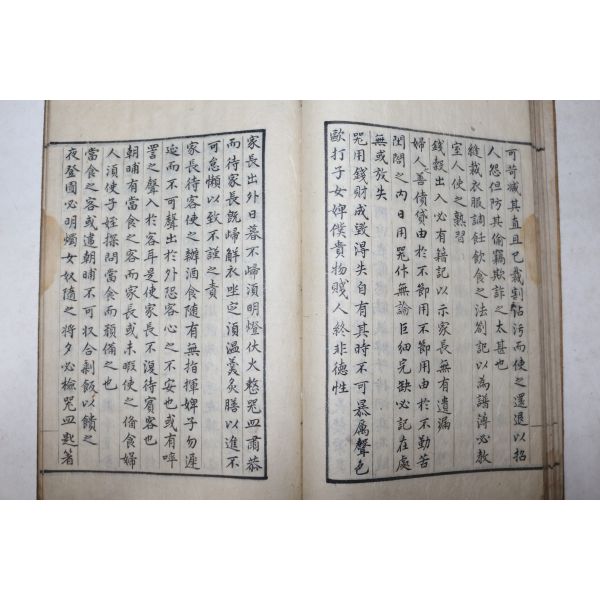 可苛減其直且已裁割帖汚而使之還退以招
人怨但防其偷竊欺詐之太甚也
縫裁衣服調飪飮食之法劄記以爲譜薄必敎
室人使之熟習
錢穀出入必有籍記以示家長無有遺漏
婦人之善債貸由於不節用不節用由於不勤苦
閨閤之內日用器什無論巨細完缺必記在處
無或放失
器用錢財成毀得失自有其時不可暴厲聲色
歐打子女婢僕貴物賤人終非德性
家長出外日暮不歸須明燈伏火整器皿肅恭
而待家長旣歸解衣坐定須溫羹炙膳以進不
可怠懶以致不謹之責
家長待客使之辦酒食隨有無指揮婢子勿遲
延而不可聲出於外恐客心之不安也或有啐
詈之聲入於客耳是使家長不復待賓客也
朝晡有當食之客而家長或未暇使之備食婦
人須使子姪探問當食而預備之也
當食之客或遣朝晡不可收合剩飯以饋之
夜登圊必明燭女奴隨之將夕必檢器皿匙箸